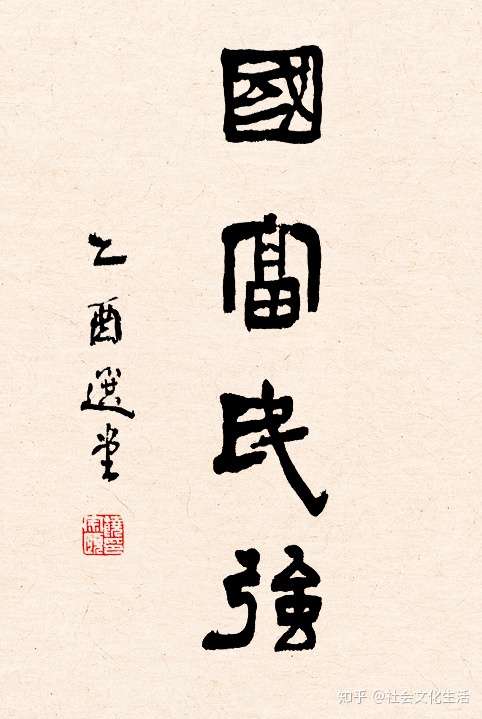 國富民強
乙酉選堂
知乎 @社会文化生活